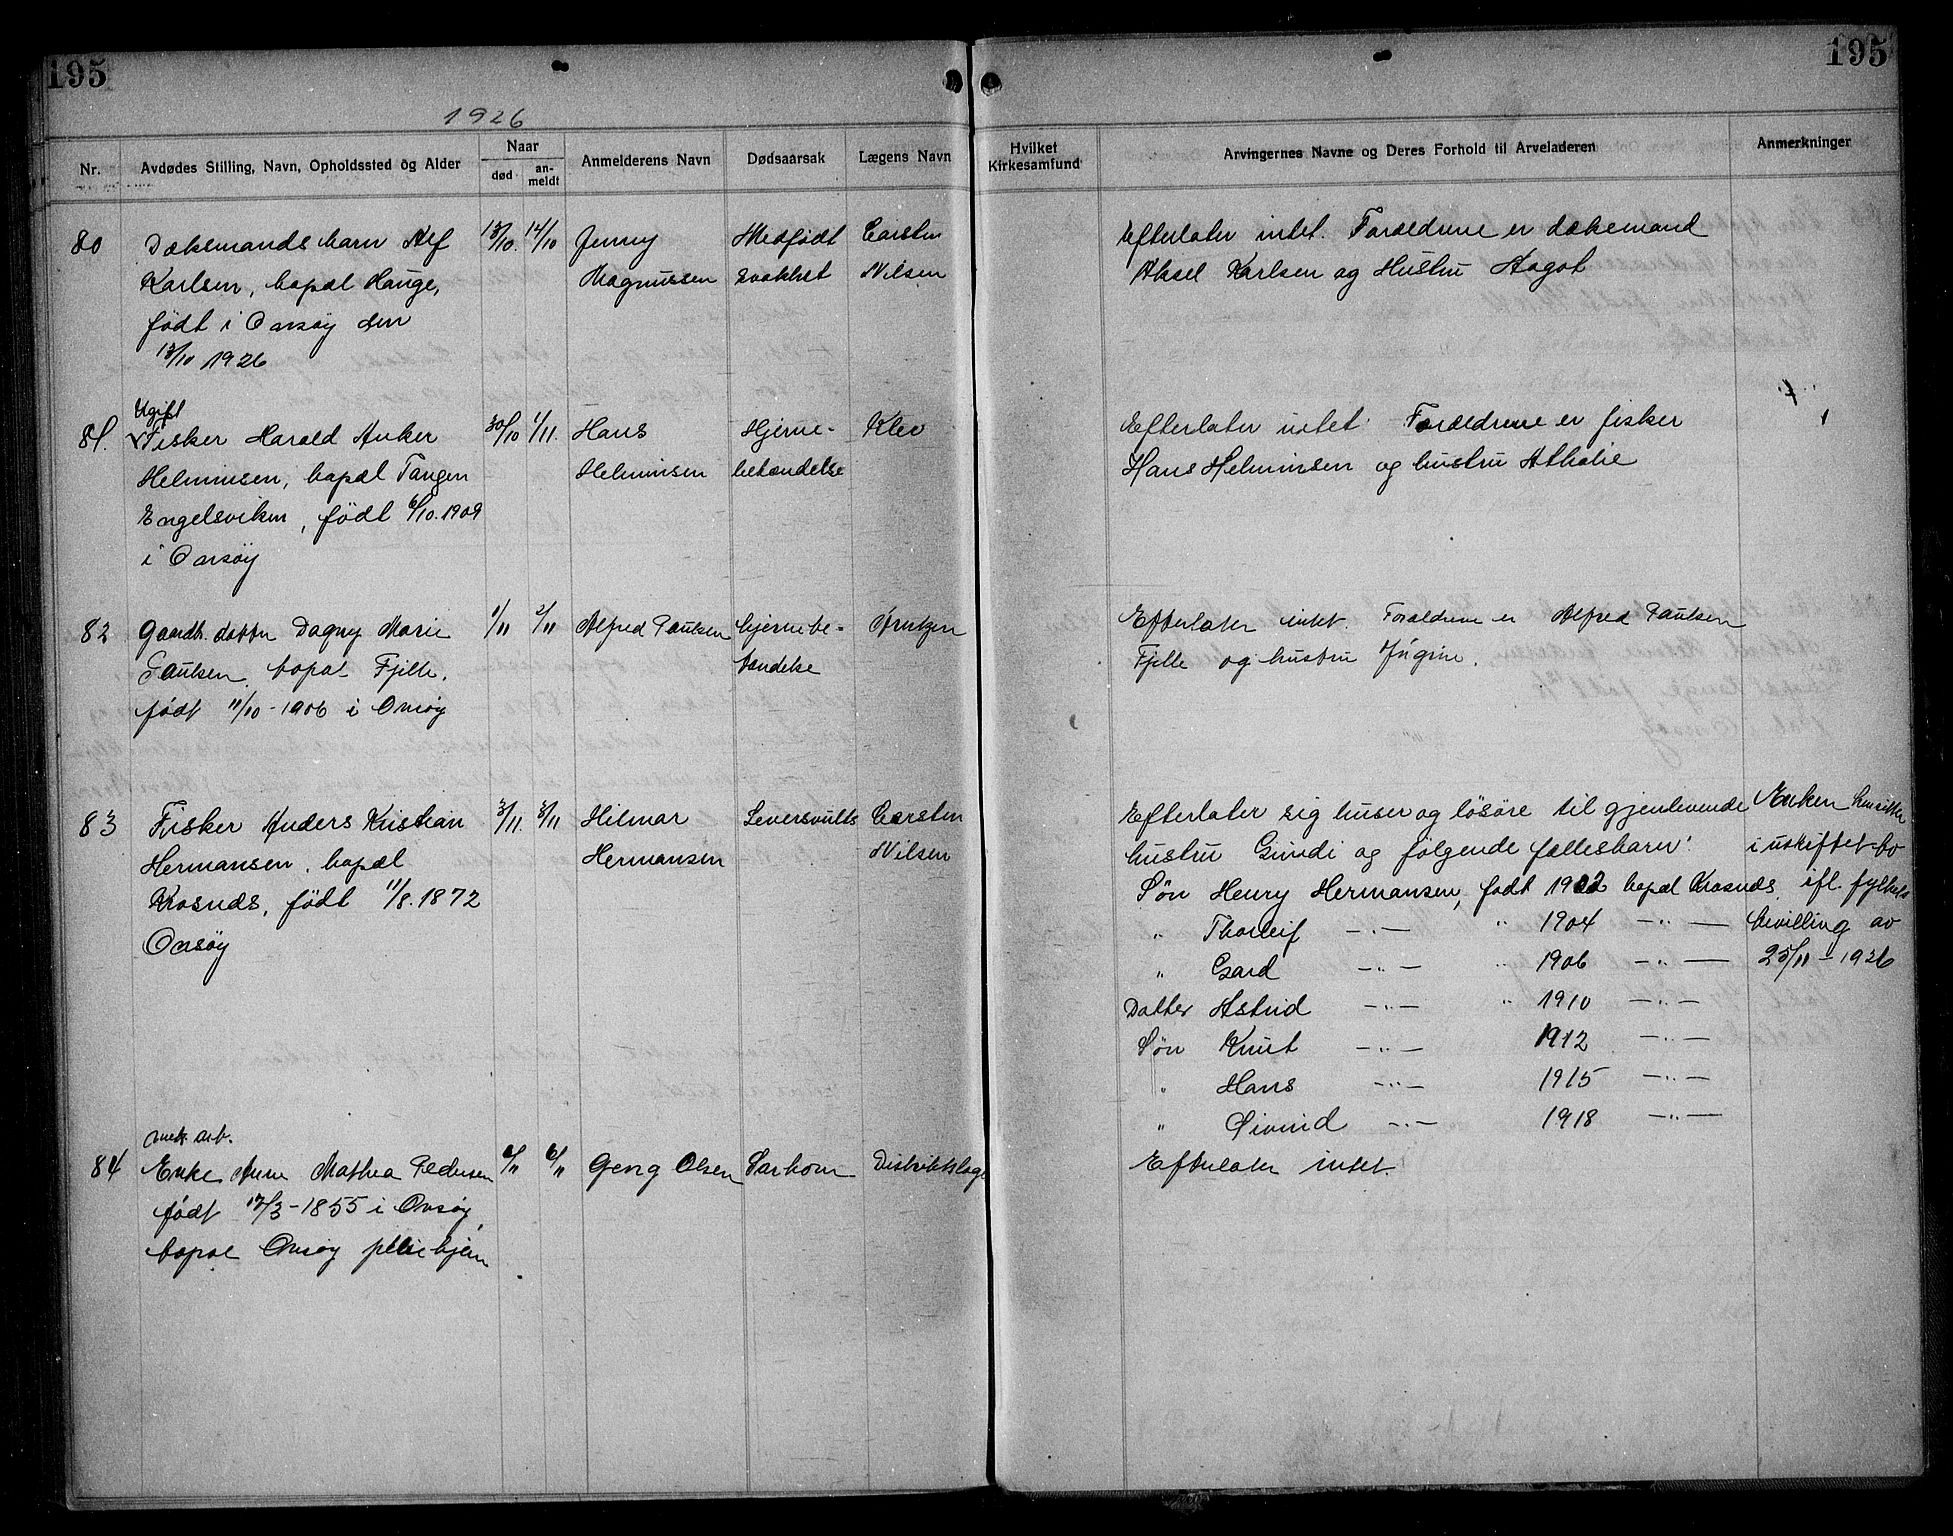 195
195
1926
Nr.
Avdødes Stilling, Navn, Opholdssted og Alder
Naar
død
an-
meldt
Anmelderens Navn
Dødsaarsak
Lægens Navn
Hvilket
Kirkesamfund
Arvingernes Navne og Deres Forhold til Arveladeren
Anmerkninger
80
Dæksmands barn Alf
Karlsen, bopæl Hauge,
født i Onsøy den
13/10 1926
13/10
14/10
Jenny
Magnussen
Medfødt
svakhet
Carsten
Nilsen
Efterlater intet. Forældrene er dækemand
Aksel Karlsen og Hustru Aagot
81.
Ugift
Fisker Harald Anker
Helminsen, bopæl Tangen
Engelsviken, født 6/10.1909
i Onsøy
30/10
1/11.
Hans
Helminsen
Hjerne-
betændelse
Klev
Efterlater intet Forældrene er fisker
Hans Helminsen og hustru Athalie
82
Gaardb. datter Dagny Marie
Paulsen, bopæl Fjelle,
født 11/10-1906 i Onsøy
1/11
2/11
Alfred Paulsen
hjernebe-
tændelse
Efterlater intet. Forældrene er Alfred Paulsen
Fjelle og hustru
83
Fisker Anders Kristian
Hermansen, bopæl
Krosnes, født 11/8.1872
Onsøy
3/11.
3/11
Hilmar
Hermansen
Leversvulst
Carsten
Nilsen
Efterlater sig huser og løsøre til gjenlevende
hustru Gundi og følgende fællesbarn:
Søn Henry Hermansen, født 1902 bopæl Krosnes
" Thorleif —"— " 1904 —"—
" Gard —"— " 1906 —"—
Datter Astrid —"— " 1910 —"—
Søn Knut —"— 1912 —"—
" Hans —"— 1915 —"—
" Eivind —"— 1918 —"—
Enken hensitter
i uskiftet bo
ifl. fylkets
bevilling av
25/11-1926
84
mek. arb.
Enke Anne Mathea Pedersen
født 17/3-1855 i Onsøy,
bopæl Onsøy pleiehjem
6/11
6/11
Georg Olsen
Sarkom
Distriktslæge
Efterlater intet.